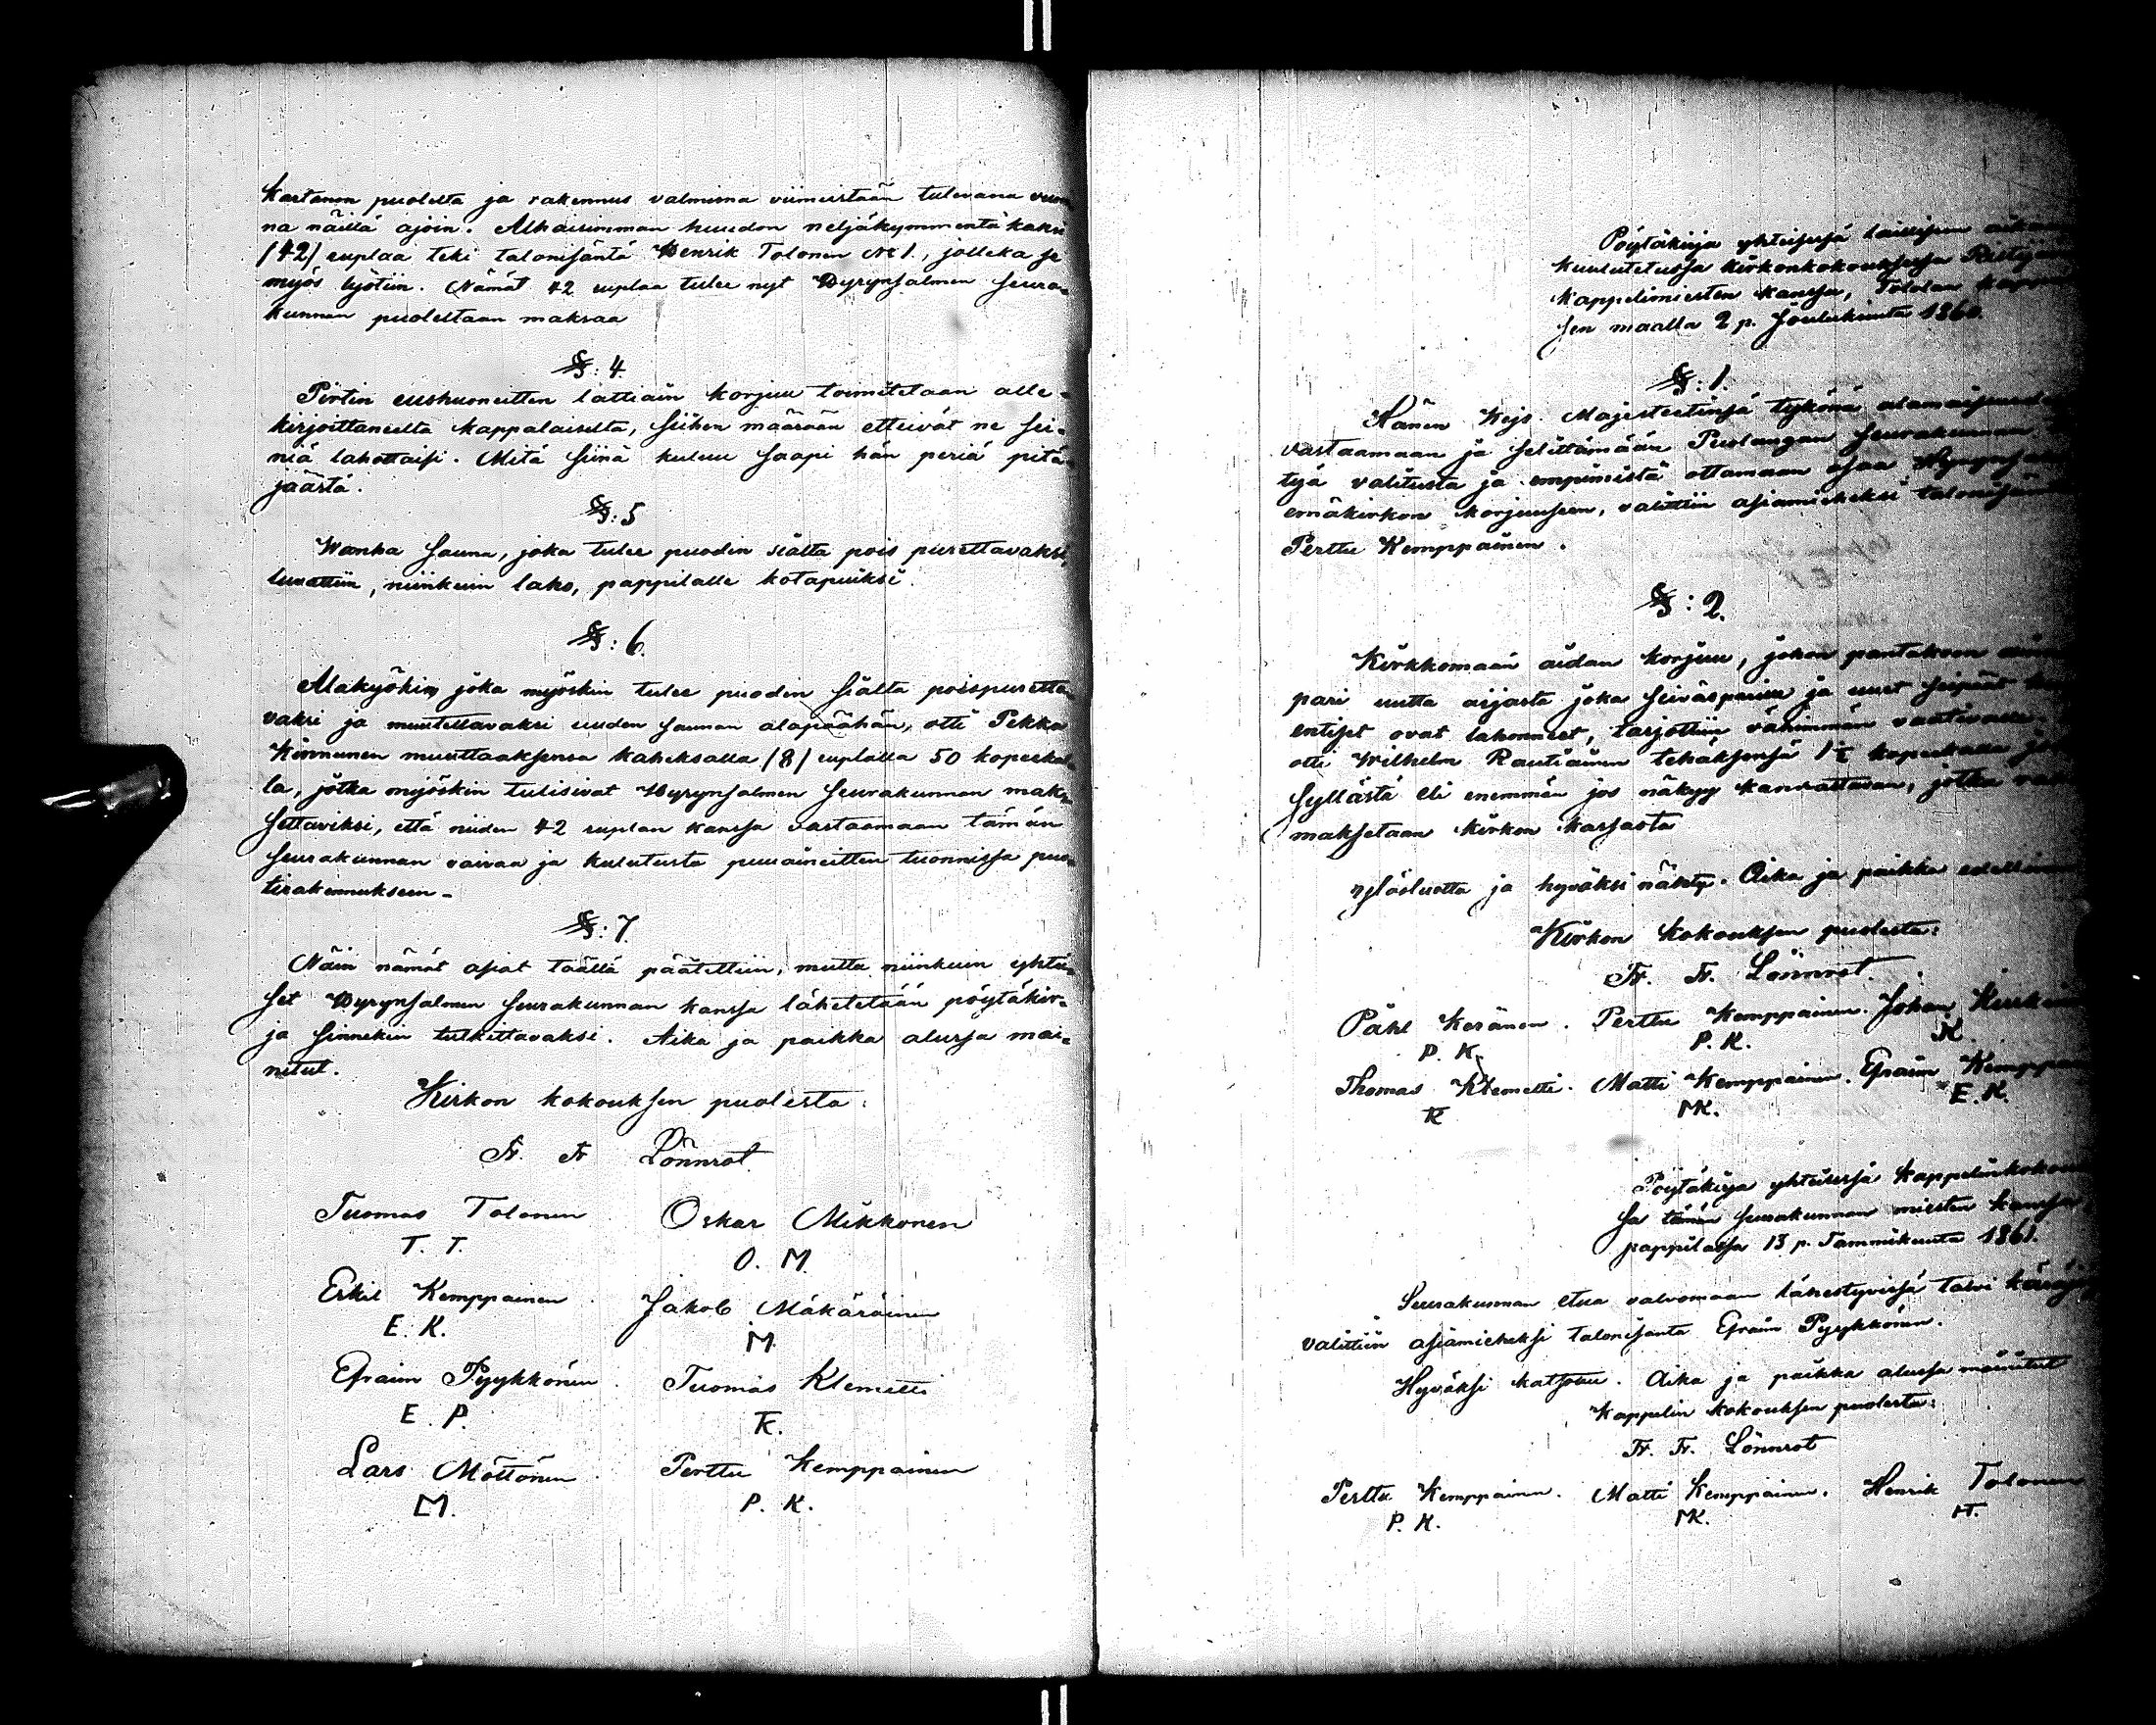 Kartanon puolesta ja rakennus valmisna viimeistään tulevana vuon
na näillä ajoin. Alhaisimman huudon neljäkymmentäkaksi
(42) ruplaa teki talonisäntä Henrik Tolonen No 1., jolleka se
myös lyötiin. Nämät 42 ruplaa tulee nyt Hyrynsalmen seura-
kunnan puolestaan maksaa
§: 4.
Pirtin eushuoneitten lattiain korjuu toimitetaan alle-
kirjoittaneelta kappalaiselta, siihen määrään etteivät ne sei-
niä lahottaisi. Mitä siinä kuluu saapi hän periä pitä-
jäästä.
§: 5
Wanha sauna, joka tulee puodin siältä pois purettavaksi,
luvattiin, niinkuin laho, pappilalle kotapuiksi.
§: 6.
Alakyökin, joka myöskin tulee puodin siältä poispuretta-
vaksi ja muutettavaksi uuden saunan alapäähän, otti Pekka
Kinnunen muuttaaksensa kaheksalla (8) ruplalla 50 kopeekal-
la, jotka myöskin tulisivat Hyrynsalmen seurakunnan mak-
settaviksi, että niiden 42 ruplan kanssa vastaamaan tämän
seurakunnan vaivaa ja kulutusta puuaineitten tuonnissa puo-
tirakennukseen.
§: 7.
Näin nämät asiat täällä päätettiin, mutta niinkuin yhtei-
set Hyrynsalmen seurakunnan kanssa lähetetään pöytäkir-
ja sinnekin tutkittavaksi. Aika ja paikka alussa mai-
nitut.
Kirkon kokouksen puolesta:
Fr. Fr Lönnrot
Tuomas Tolonen Oskar Mikkonen
T. T. O. M.
Erkil Kemppainen Jakob Mäkäräinen
E. K. M.
Efraim Pyykkönen. Tuomas Klemetti
E. P. K.
Lars Möttönen Perttu Kemppainen
M. P. K.
Pöytäkirja yhteisessä laillisen aikana
kuulutetussa kirkonkokouksessa Ristijärven
kappelimiesten kanssa, Tololan kappalai
sen maalla 2 p. Joulukuuta 1860.
§: 1.
Hänen Kejs. Majesteetinsä tykönä alamaisuudessa
vastaamaan ja selittämään Puolangan seurakunnan
tyjä valitusta ja empimistä ottamaan osaa Hyrynsalmen
emäkirkon korjuuseen, valittiin asiamieheksi talonisäntä
Perttu Kemppainen.
§: 2.
Kirkkomaan aidan korjuu, johon pantakoon
pari uutta aijasta joka seiväspariin ja uuet seipäät
entiset ovat lahonneet, tarjottiin vähimmän vaativalle.
otti Wilhelm Rautiainen tehäksensä 1½ kopeekalla
syllästä eli enemmän jos näkyy kanvattavan, jotka
maksetaan kirkon kassasta
ylösluettu ja hyväksi nähty. Aika ja paikka edellinen
Kirkon kokouksen puolesta:
Fr. Fr. Lönnrot.
Påhl Keränen. Perttu Kemppainen. Johan
P. K. P. K. K.
Thomas Klemetti. Matti Kemppainen. Efraim Kemppainen
K MK. E. K.
Pöytäkirja yhteisessä kappelinkokouk
sa tämän seurakunnan miesten kanssa
pappilassa 13 p. Tammikuuta 1861.
Seurakunnan etua valvomaan lähestyvissä talvi käräjissä
valittiin asiamieheksi talonisäntä Efraim Pyykkönen.
Hyväksi katsottu. Aika ja paikka alussa mainitut
Kappelin kokouksen puolesta:
Fr. Fr. Lönnrot
Perttu Kemppainen. Matti Kemppainen. Henrik Tolonen
P. K. MK. HT.